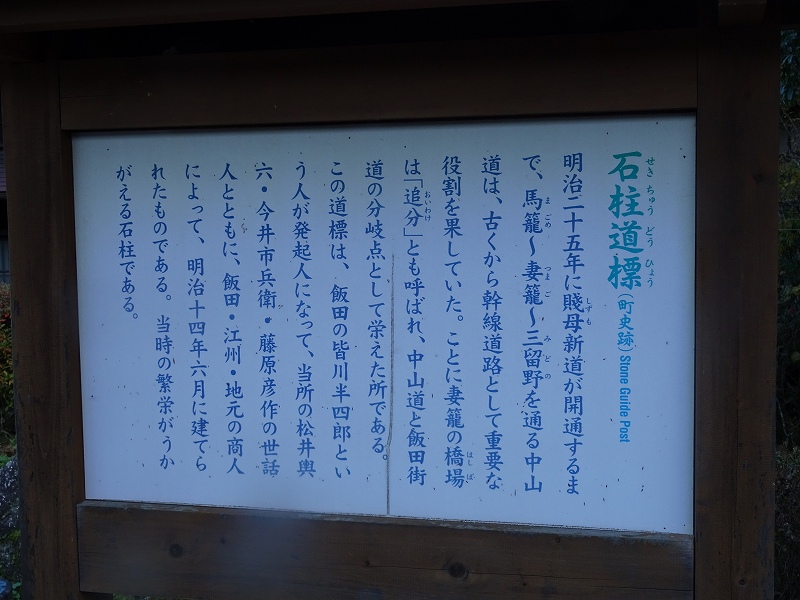 石柱道標(町史跡) Stone Guide Post
せきちゅうどうひょう
明治二十五年に賤母新道が開通するま
しずも
で、馬籠～妻籠～三留野を通る中山
まごめ つまご みどの
道は、古くから幹線道路として重要な
役割を果していた。ことに妻籠の橋場
はしば
は「追分」とも呼ばれ、中山道と飯田街
おいわけ
道の分岐点として栄えた所である。
この道標は、飯田の皆川半四郎とい
う人が発起人になって、当所の松井興
六・今井市兵衛・藤原彦作の世話
人とともに、飯田・江州・地元の商人
によって、明治十四年六月に建てら
れたものである。当時の繁栄がうか
がえる石柱である。